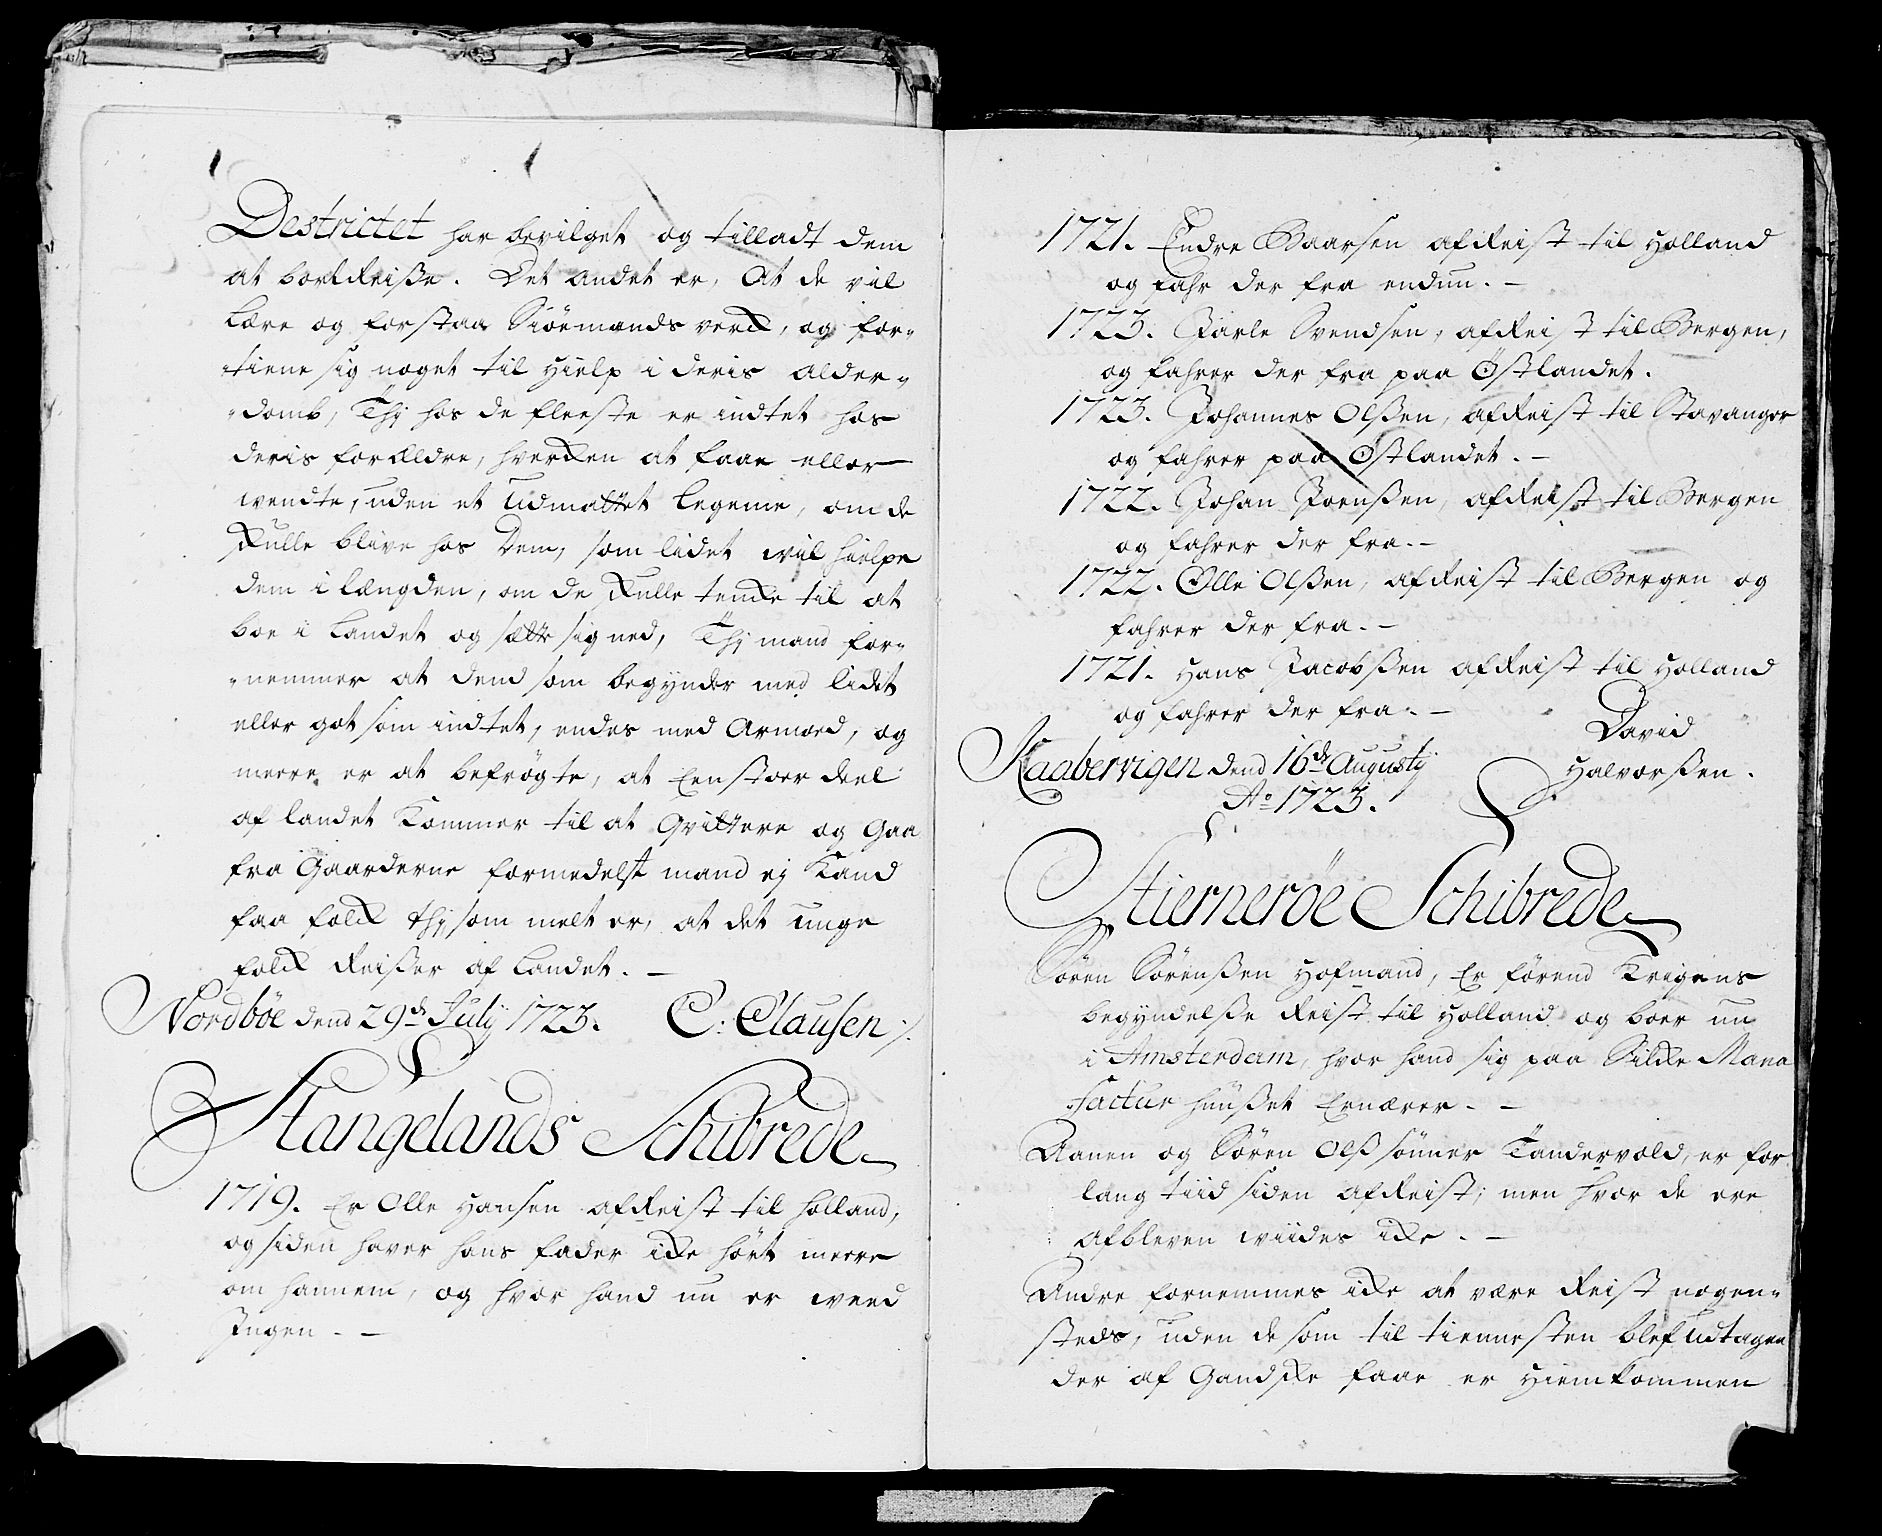 Destrictet har bevilget og tilladt dem
at bortReiße. Det andet er, At de vil
Lære og forstaa Siöemands verck, og for-
tiene sig noget til Hielp i deris alder-
domb, Thj hos de fleeste er indtet hos
deris foræLdre, hvercken at faae eller
wendte, uden et Udmattet legeme, om de
skulle blive hos Dem, som lidet wil hielpe
dem i længden, om de skulle tencke til at
boe i Landet og sætte sig ned, Thj mand for-
nemmer at dend som begynder med lidet
eller got som indtet, endes med Armoed, og
meere er at befrögte, at Een stoer deel
af landet Kommer til at Qvittere og Gaa
fra Gaarderne formedelst mand ej Kand
faa folck thj som melt er, at det unge
folck Reißer af Landet. —
Nordböe dend 29de July 1723. C: Clausen /.
Stangelands Schibrede
1719. Er Olle Hansen afReist til Holland,
og siden haver hans fader icke hört meere
om hannem, og hvor hand nu er weed
Ingen. —
1721. Endre Baarsen afReist til Holland
og fahr der fra endnu. —
1723. Jarle Svendsen, afReist til Bergen,
og fahrer der fra paa Östlandet.
1723. Johannes Olßen, afReist til Stavanger
og fahrer paa Östlandet. —
1722. Johan Joenßen, afReist til Bergen
og fahrer der fra. —
1722. Olle Olßen, afReist til Bergen og
fahrer der fra. —
1721. Hans Jacobßen afReist til Holland
og fahrer der fra. —
David
Kaabervigen dend 16de Augustj Halvorßen.
Ao 1723.
Stierneröe Schibrede
Sören Sörenßen Hofmand, Er förend Krigens
begyndelße Reist til Holland og boer nu
i Amsterdam, hvor hand sig paa Silcke Manu
Factur huußet Ernærer. —
Aanen og Sören Olß sönner Tandervold, er for
lang tiid siden afReist; men hvor de ere
afbleven wiides icke. —
Andre fornemmes icke at være Reist nogen-
steds, uden de som til tiennesten blef udtagen
der af Gandske faae er Hiemkommen